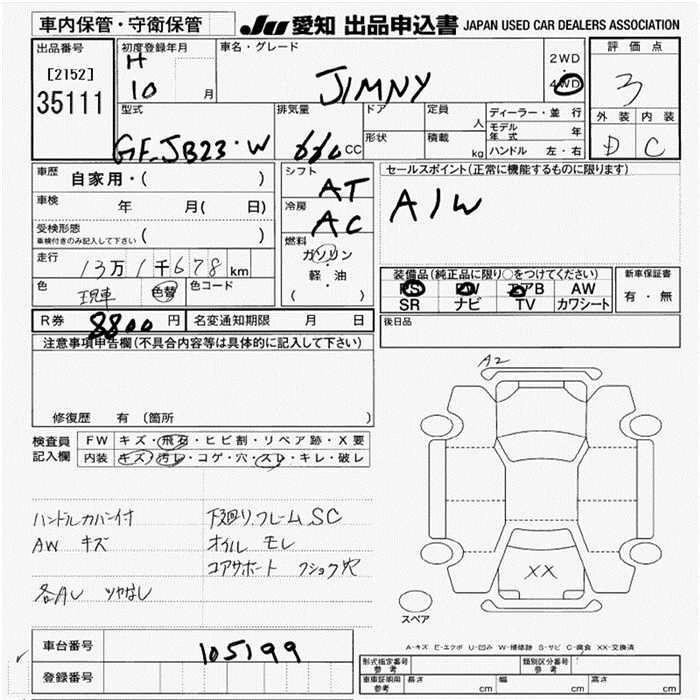 車内保管・守衛保管 JU 愛知 出品申込書 JAPAN USED CAR DEALERS ASSOCIATION
出品番号 初度登録年月 車名・グレード 評価点
[2152] H JIMNY 2WD
35111 10 月 4WD 3
型式 排気量 ドア 定員 人 ディーラー・並行 外装 内装
モデル年式 年
GF-JB23・W 660 CC 形状 積載 kg ハンドル 左・右 D C
車歴 自家用・( ) シフト AT セールスポイント(正常に機能するものに限ります)
車検 年 月( 日) 冷房 AC A/W
受検形態
車検付きのみ記入して下さい ( ) 燃料
走行 13万1千678 km ガソリン・軽・油 装備品(純正品に限り○をつけてください) 新車保証書
色 現車 色替 色コード ( ) PS PW エアB AW 有・無
SR ナビ TV カワシート
R券 8800 円 名変通知期限 月 日 後日品
注意事項申告欄(不具合内容等は具体的に記入して下さい)
A2
修復歴 有 (箇所 )
検査員記入欄 FW キズ・飛石・ヒビ割・リペア跡・X要
内装 キズ・汚レ・コゲ・穴・スレ・キレ・破レ
ハンドルカバー付 下廻り.フレームSC
AW キズ オイル モレ
コアサポート フショク穴
XX
各AL ツヤなし
スペア
車台番号 105199
A-キズ E-エクボ U-凹み W-補修跡 S-サビ C-腐食 XX-交換済
登録番号 形式指定番号 参考 類別区分番号 参考
車車証明用 参考 長さ cm 幅 cm 高さ cm